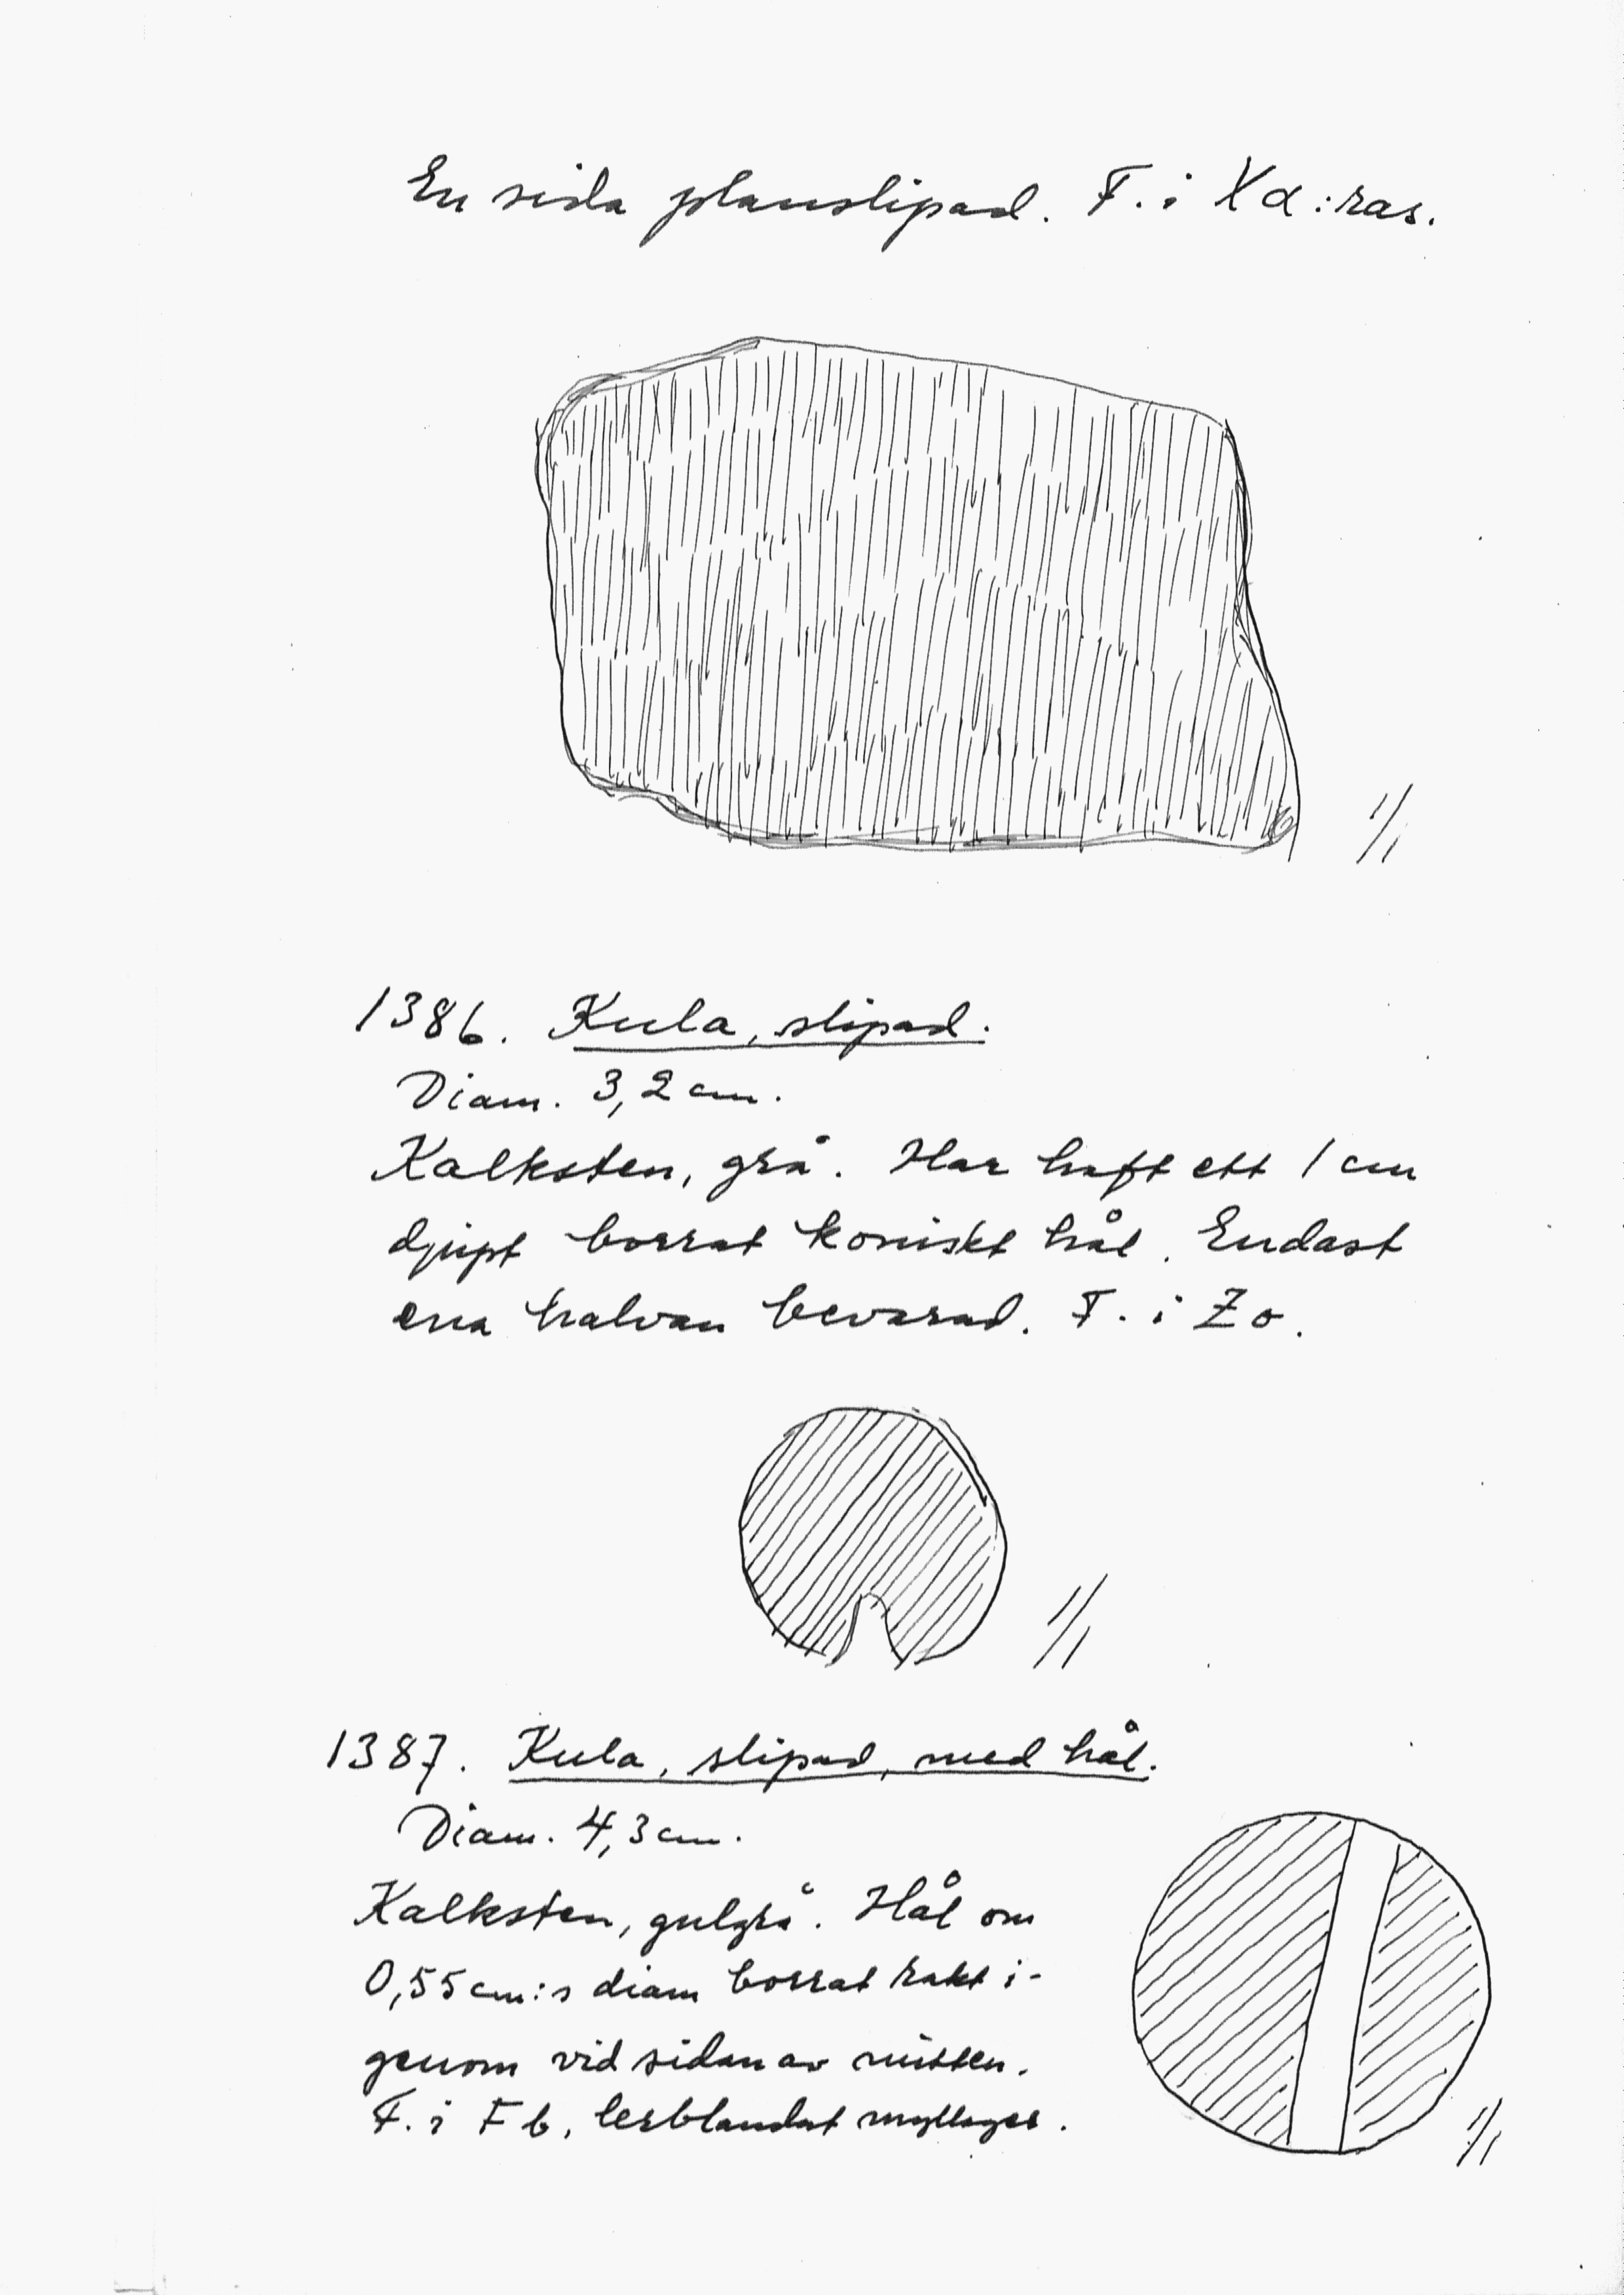 En sida planslipad. F. i Xα:ras.
1/1
1386. Kula, slipad.
Diam. 3,2 cm.
Kalksten, grå. Har haft ett 1 cm
djupt borrat koniskt hål. Endast
ena halvan bevarad. F. i Zo.
1/1
1387. Kula, slipad, med hål.
Diam. 4,3 cm.
Kalksten, gulgrå. Hål om
0,55 cm:s diam borrat rakt i-
genom vid sidan av mitten.
F. i Fb, lerblandat myllager.
1/1